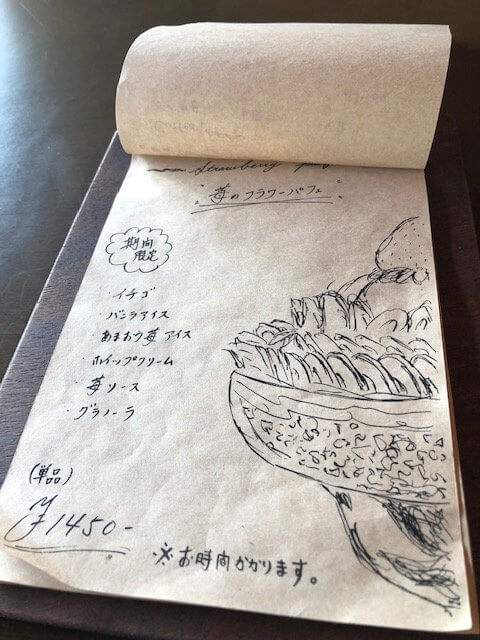 Strawberry
苺のフラワーパフェ
期間
限定
・イチゴ
・バニラアイス
・あまおう苺アイス
・ホイップクリーム
・苺ソース
・グラノーラ
(単品)
¥1450-
※お時間かかります。